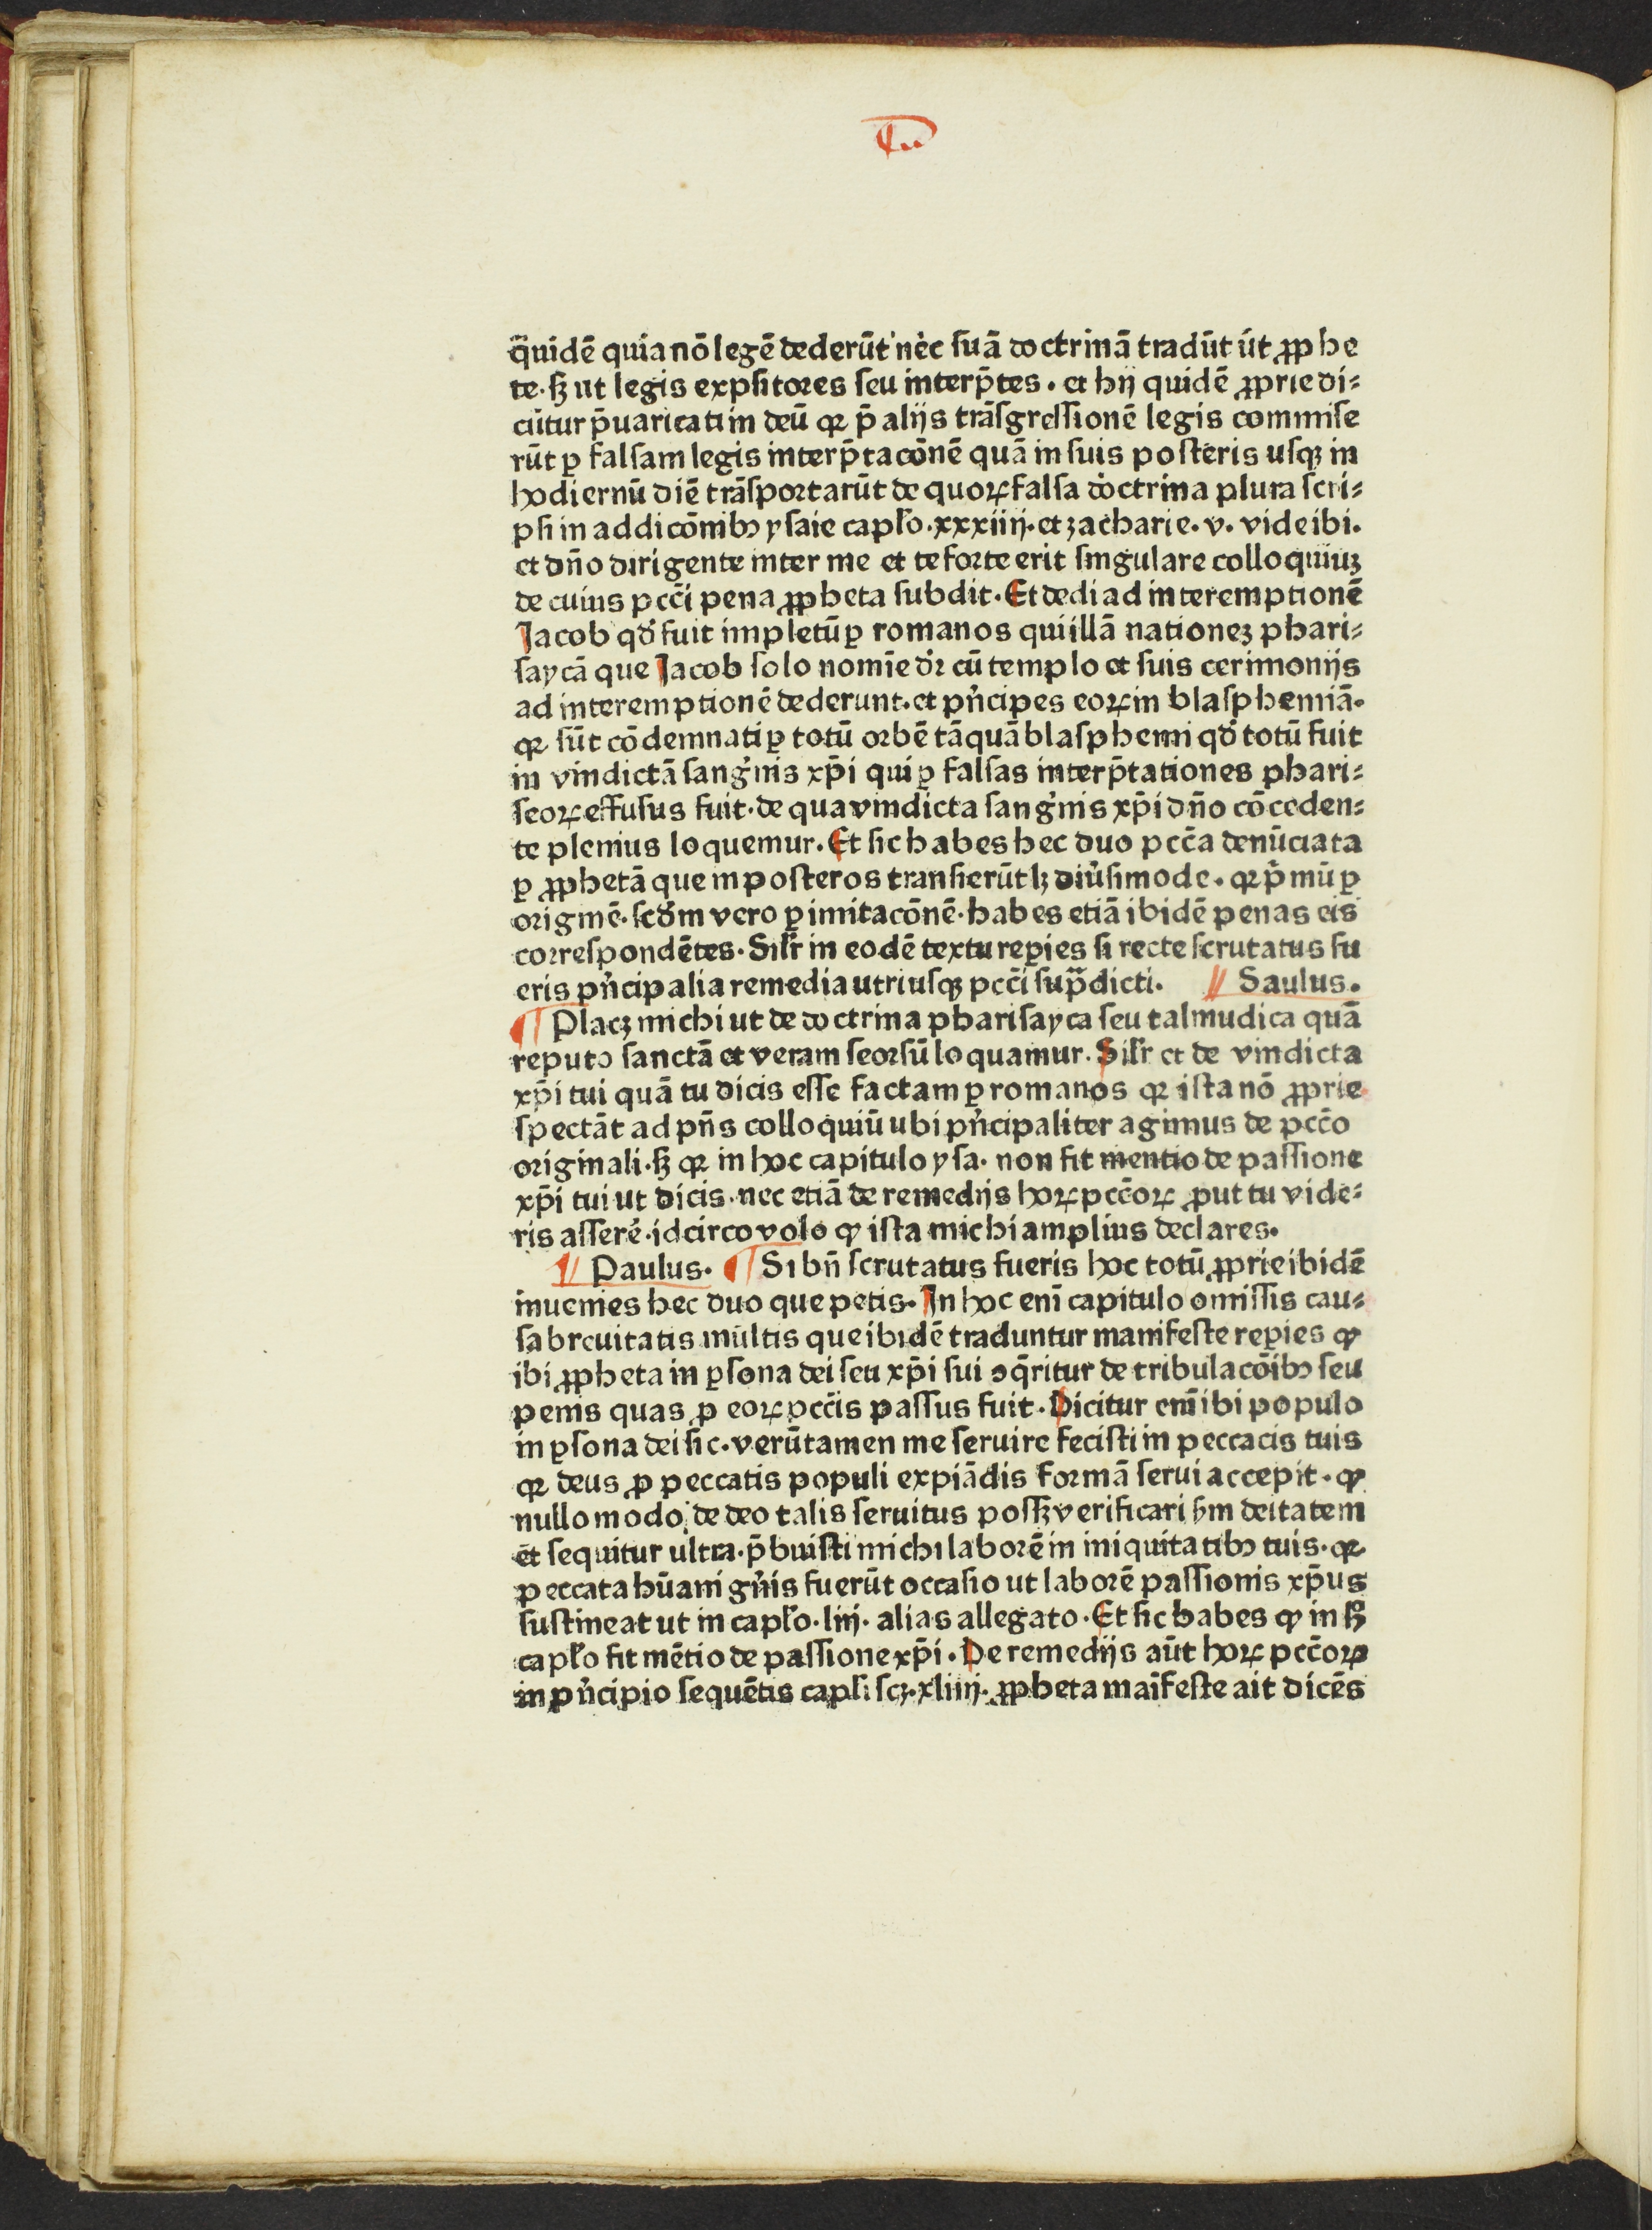 q̄uidē quia nō legē dederūt nec suā doctrinā tradūt ut ꝓphe
te· sꝫ ut legis expsitores seu interp̄tes· et hij quidē ꝓprie di⸗
cūtur p̄uaricati in deū qꝛ p̄ alijs trāsgressionē legis commise
rūt ꝑ falsam legis interp̄tacōnē quā in suis posteris usqꝫ in
hodiernū diē trāsportarūt de quoꝝ falsa doctrina plura scri⸗
psi in addicōnibꝰ ysaie capło·xxxiiij· et zacharie· v· vide ibi·
et dño dirigente inter me et te forte erit singulare colloquiuꝫ
de cuius pcc̄i pena ꝓpheta subdit· Et dedi ad interemptionē
Jacob qđ fuit impletū ꝑ romanos qui illā nationeꝫ phari⸗
saycā que Jacob solo nomīe dr̄ cū templo et suis cerimonijs
ad interemptionē dederunt· et pͥncipes eoꝝ in blasphemiā·
qꝛ sūt cōdemnati ꝑ totū orbē tāquā blasphemi qđ totū fuit
in vindictā sangͥnis xp̄i qui ꝑ falsas interp̄tationes phari⸗
seoꝝ effusus fuit· de qua vindicta sangͥnis xp̄i dño cōceden⸗
te plenius loquemur· Et sic habes hec duo pcc̄a denūciata
ꝑ ꝓphetā que in posteros transierūt lꝫ diu̓simode· qꝛ pͥmū ꝑ
originē· scđm vero ꝑ imitacōnē· habes etiā ibidē penas eis
correspondētes· Silr̄ in eodē textu reꝑies si recte scrutatus fu
eris pͥncipalia remedia utriusqꝫ pcc̄i sup̄dicti· ¶ Saulus·
¶ Placꝫ michi ut de doctrina pharisayca seu talmudica quā
reputo sanctā et veram seorsū loquamur· Silr̄ et de vindicta
xp̄i tui quā tu dicis esse factam ꝑ romanos qꝛ ista nō ꝓprie
spectāt ad pn̄s colloquiū ubi pͥncipaliter agimus de pcc̄o
originali· sꝫ qꝛ in hoc capitulo ysa· non fit mentio de passione
xp̄i tui ut dicis· nec etiā de remedijs hoꝝ pcc̄oꝝ ꝓut tu vide⸗
ris asserē· idcirco volo ꝙ ista michi amplius declares·
¶ Paulus· ¶ Si bn̄ scrutatus fueris hoc totū ꝓprie ibidē
inuenies hec duo que petis· In hoc enī capitulo omissis cau⸗
sa breuitatis multis que ibidē traduntur manifeste reꝑies ꝙ
ibi ꝓpheta in ꝑsona dei seu xp̄i sui ꝯq̄ritur de tribulacōibꝰ seu
penis quas ꝓ eoꝝ pcc̄is passus fuit· Dicitur enī ibi populo
in ꝑsona dei sic· verūtamen me seruire fecisti in peccacis tuis
qꝛ deus ꝓ peccatis populi expiādis formā serui accepit· ꝙ
nullo modo de deo talis seruitus possꝫ verificari sm̄ deitatem
et sequitur ultra· p̄buisti michi laborē in iniquitatibꝰ tuis· qꝛ
peccata hūani gn̄is fuerūt occasio ut laborē passionis xp̄us
sustineat ut in capło·liij· alias allegato· Et sic habes ꝙ in hͦ
capło fit mētio de passione xp̄i· De remedijs aūt hoꝝ pcc̄oꝝ
in pͥncipio sequētis capłi scꝫ·xliiij· ꝓpheta maīfeste ait dicēs